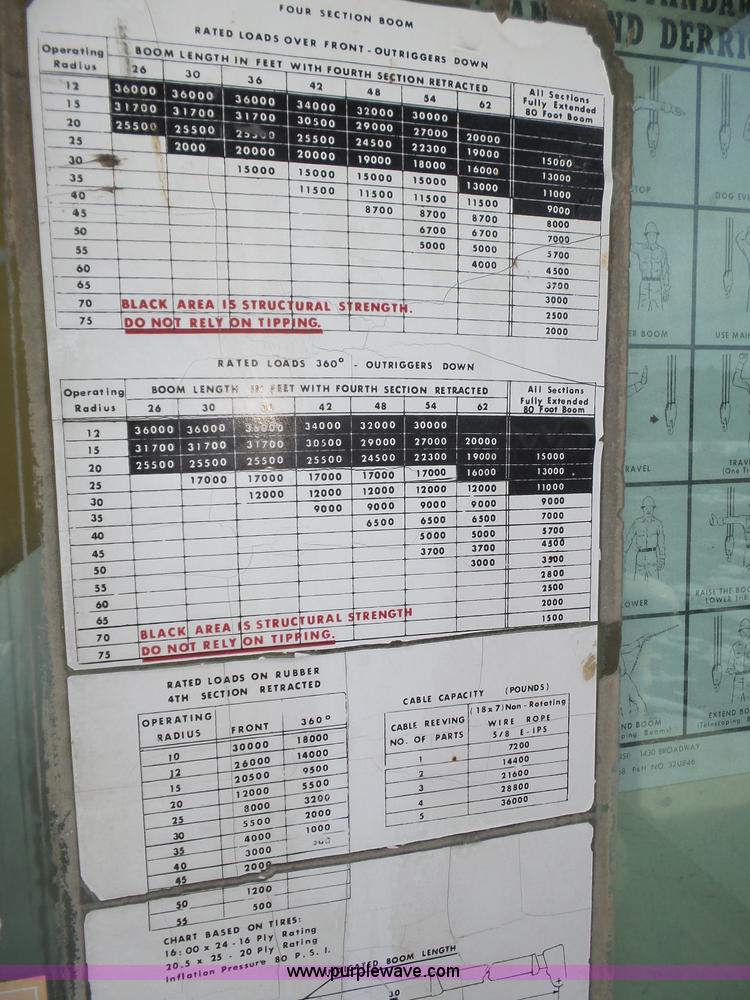 FOUR SECTION BOOM
RATED LOADS OVER FRONT - OUTRIGGERS DOWN
Operating Radius
BOOM LENGTH IN FEET WITH FOURTH SECTION RETRACTED
All Sections
Fully Extended
80 Foot Boom
26 30 36 42 48 54 62
12 36000 36000 36000 34000 32000 30000
15 31700 31700 31700 30500 29000 27000 20000
20 25500 25500 25500 25500 24500 22300 19000 15000
25 2000 20000 20000 19000 18000 16000 13000
30 15000 15000 15000 15000 13000 11000
35 11500 11500 11500 11500 9000
40 8700 8700 8700 8000
45 6700 6700 7000
50 5000 5000 5700
55 4000 4500
60 3700
65 3000
70 2500
75 2000
BLACK AREA IS STRUCTURAL STRENGTH.
DO NOT RELY ON TIPPING.
RATED LOADS 360° - OUTRIGGERS DOWN
Operating Radius
BOOM LENGTH IN FEET WITH FOURTH SECTION RETRACTED
All Sections
Fully Extended
80 Foot Boom
26 30 42 48 54 62
12 36000 36000 36000 34000 32000 30000
15 31700 31700 31700 30500 29000 27000 20000
20 25500 25500 25500 25500 24500 22300 19000 15000
25 17000 17000 17000 17000 17000 16000 13000
30 12000 12000 12000 12000 12000 11000
35 9000 9000 9000 9000 9000
40 6500 6500 6500 7000
45 5000 5000 5700
50 3700 3700 4500
55 3000 3500
60 2800
65 2500
70 2000
75 1500
BLACK AREA IS STRUCTURAL STRENGTH
DO NOT RELY ON TIPPING.
RATED LOADS ON RUBBER
4TH SECTION RETRACTED
OPERATING RADIUS FRONT 360°
10 30000 18000
12 26000 14000
15 20500 9500
20 12000 5500
25 8000 3200
30 5500 2000
35 4000 1000
40 3000
45 2000
50 1200
55 500
CHART BASED ON TIRES:
16:00 x 24 - 16 Ply Rating
20.5 x 25 - 20 Ply Rating
Inflation Pressure 80 P.S.I.
CABLE CAPACITY (POUNDS)
CABLE REEVING NO. OF PARTS
(18x7) Non-Rotating
WIRE ROPE
5/8 E-IPS
1 7200
2 14400
3 21600
4 28800
5 36000
BOOM LENGTH
30
ND DERRI
STOP
DOG EV
ER BOOM
USE MAIN
RAVEL
TRAV
(One Tr
OWER
RAISE THE BOO
LOWER THE
ND BOOM
EXTEND BO
(Telescoping
ping Booms)
1430 BROADWAY
P&H NO. 32U846
www.purplewave.com